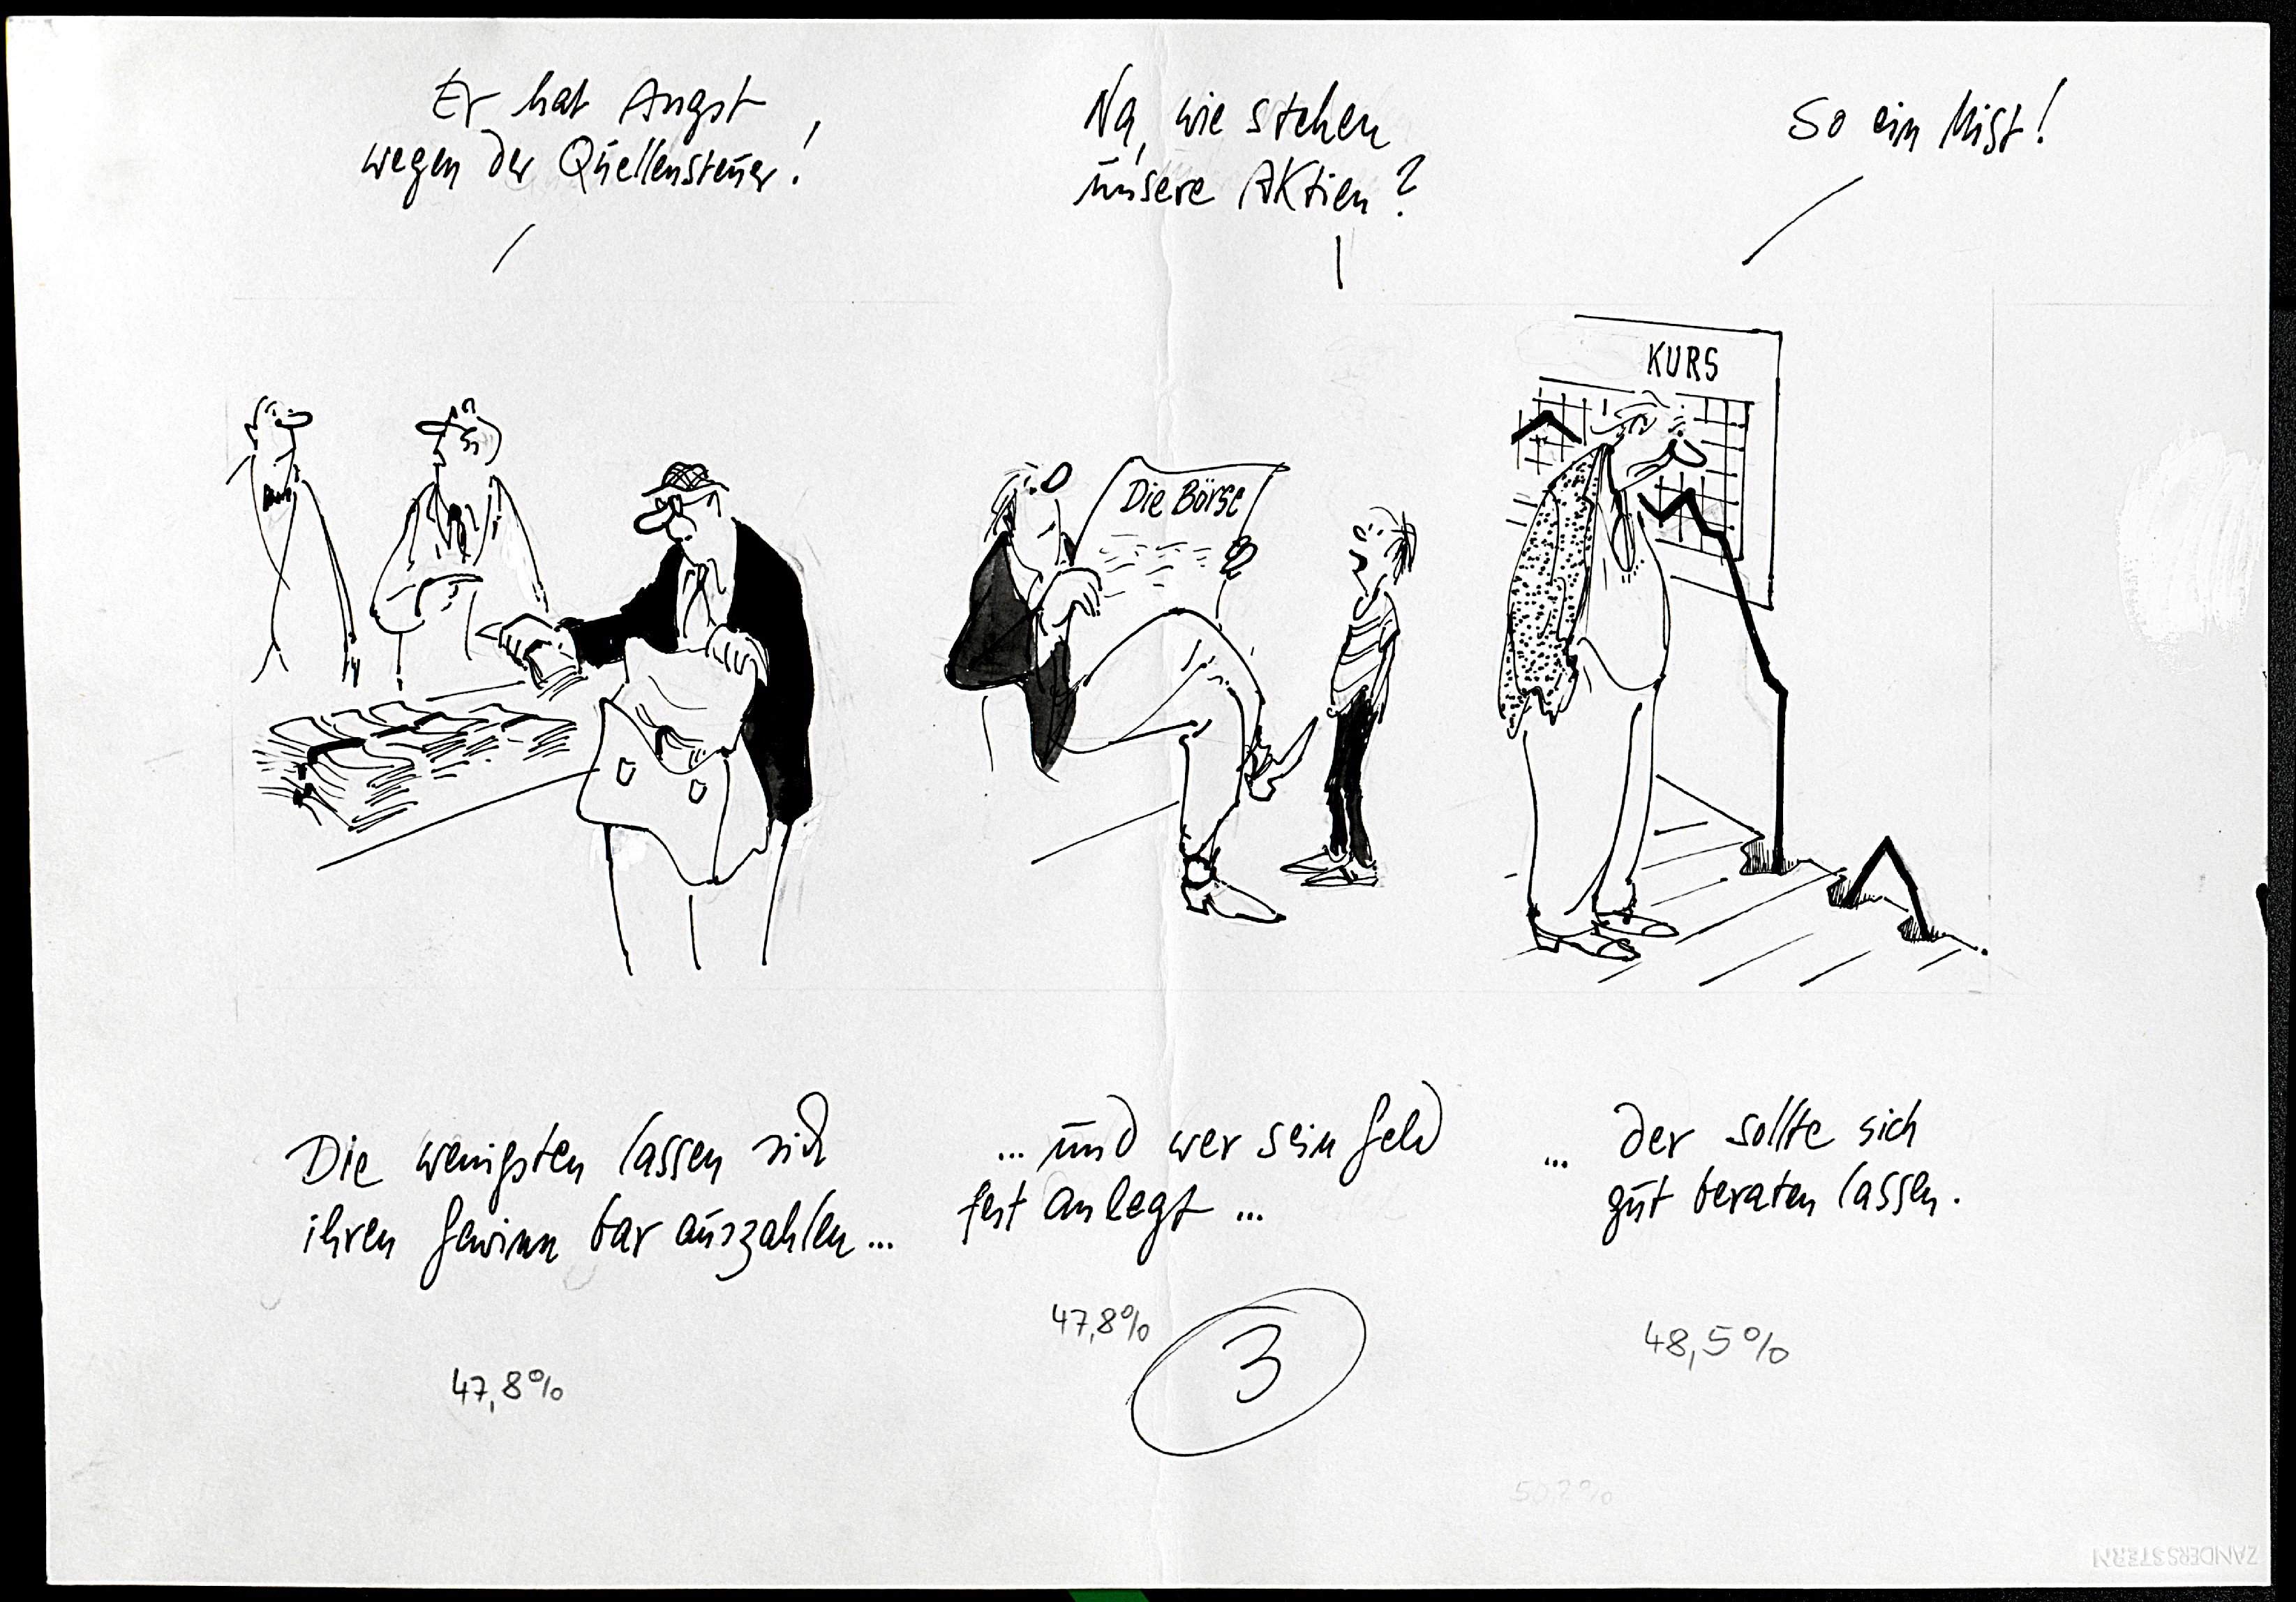 Er hat Angst
wegen der Quellensteuer!
Na, wie stehen
unsere Aktien?
So ein Mist!
Die Börse
KURS
Die wenigsten lassen sich
ihren Gewinn bar auszahlen...
... und wer sein Geld
fest anlegt ...
... der sollte sich
gut beraten lassen.
47,8%
47,8%
3
48,5%
ZANDERS STERN